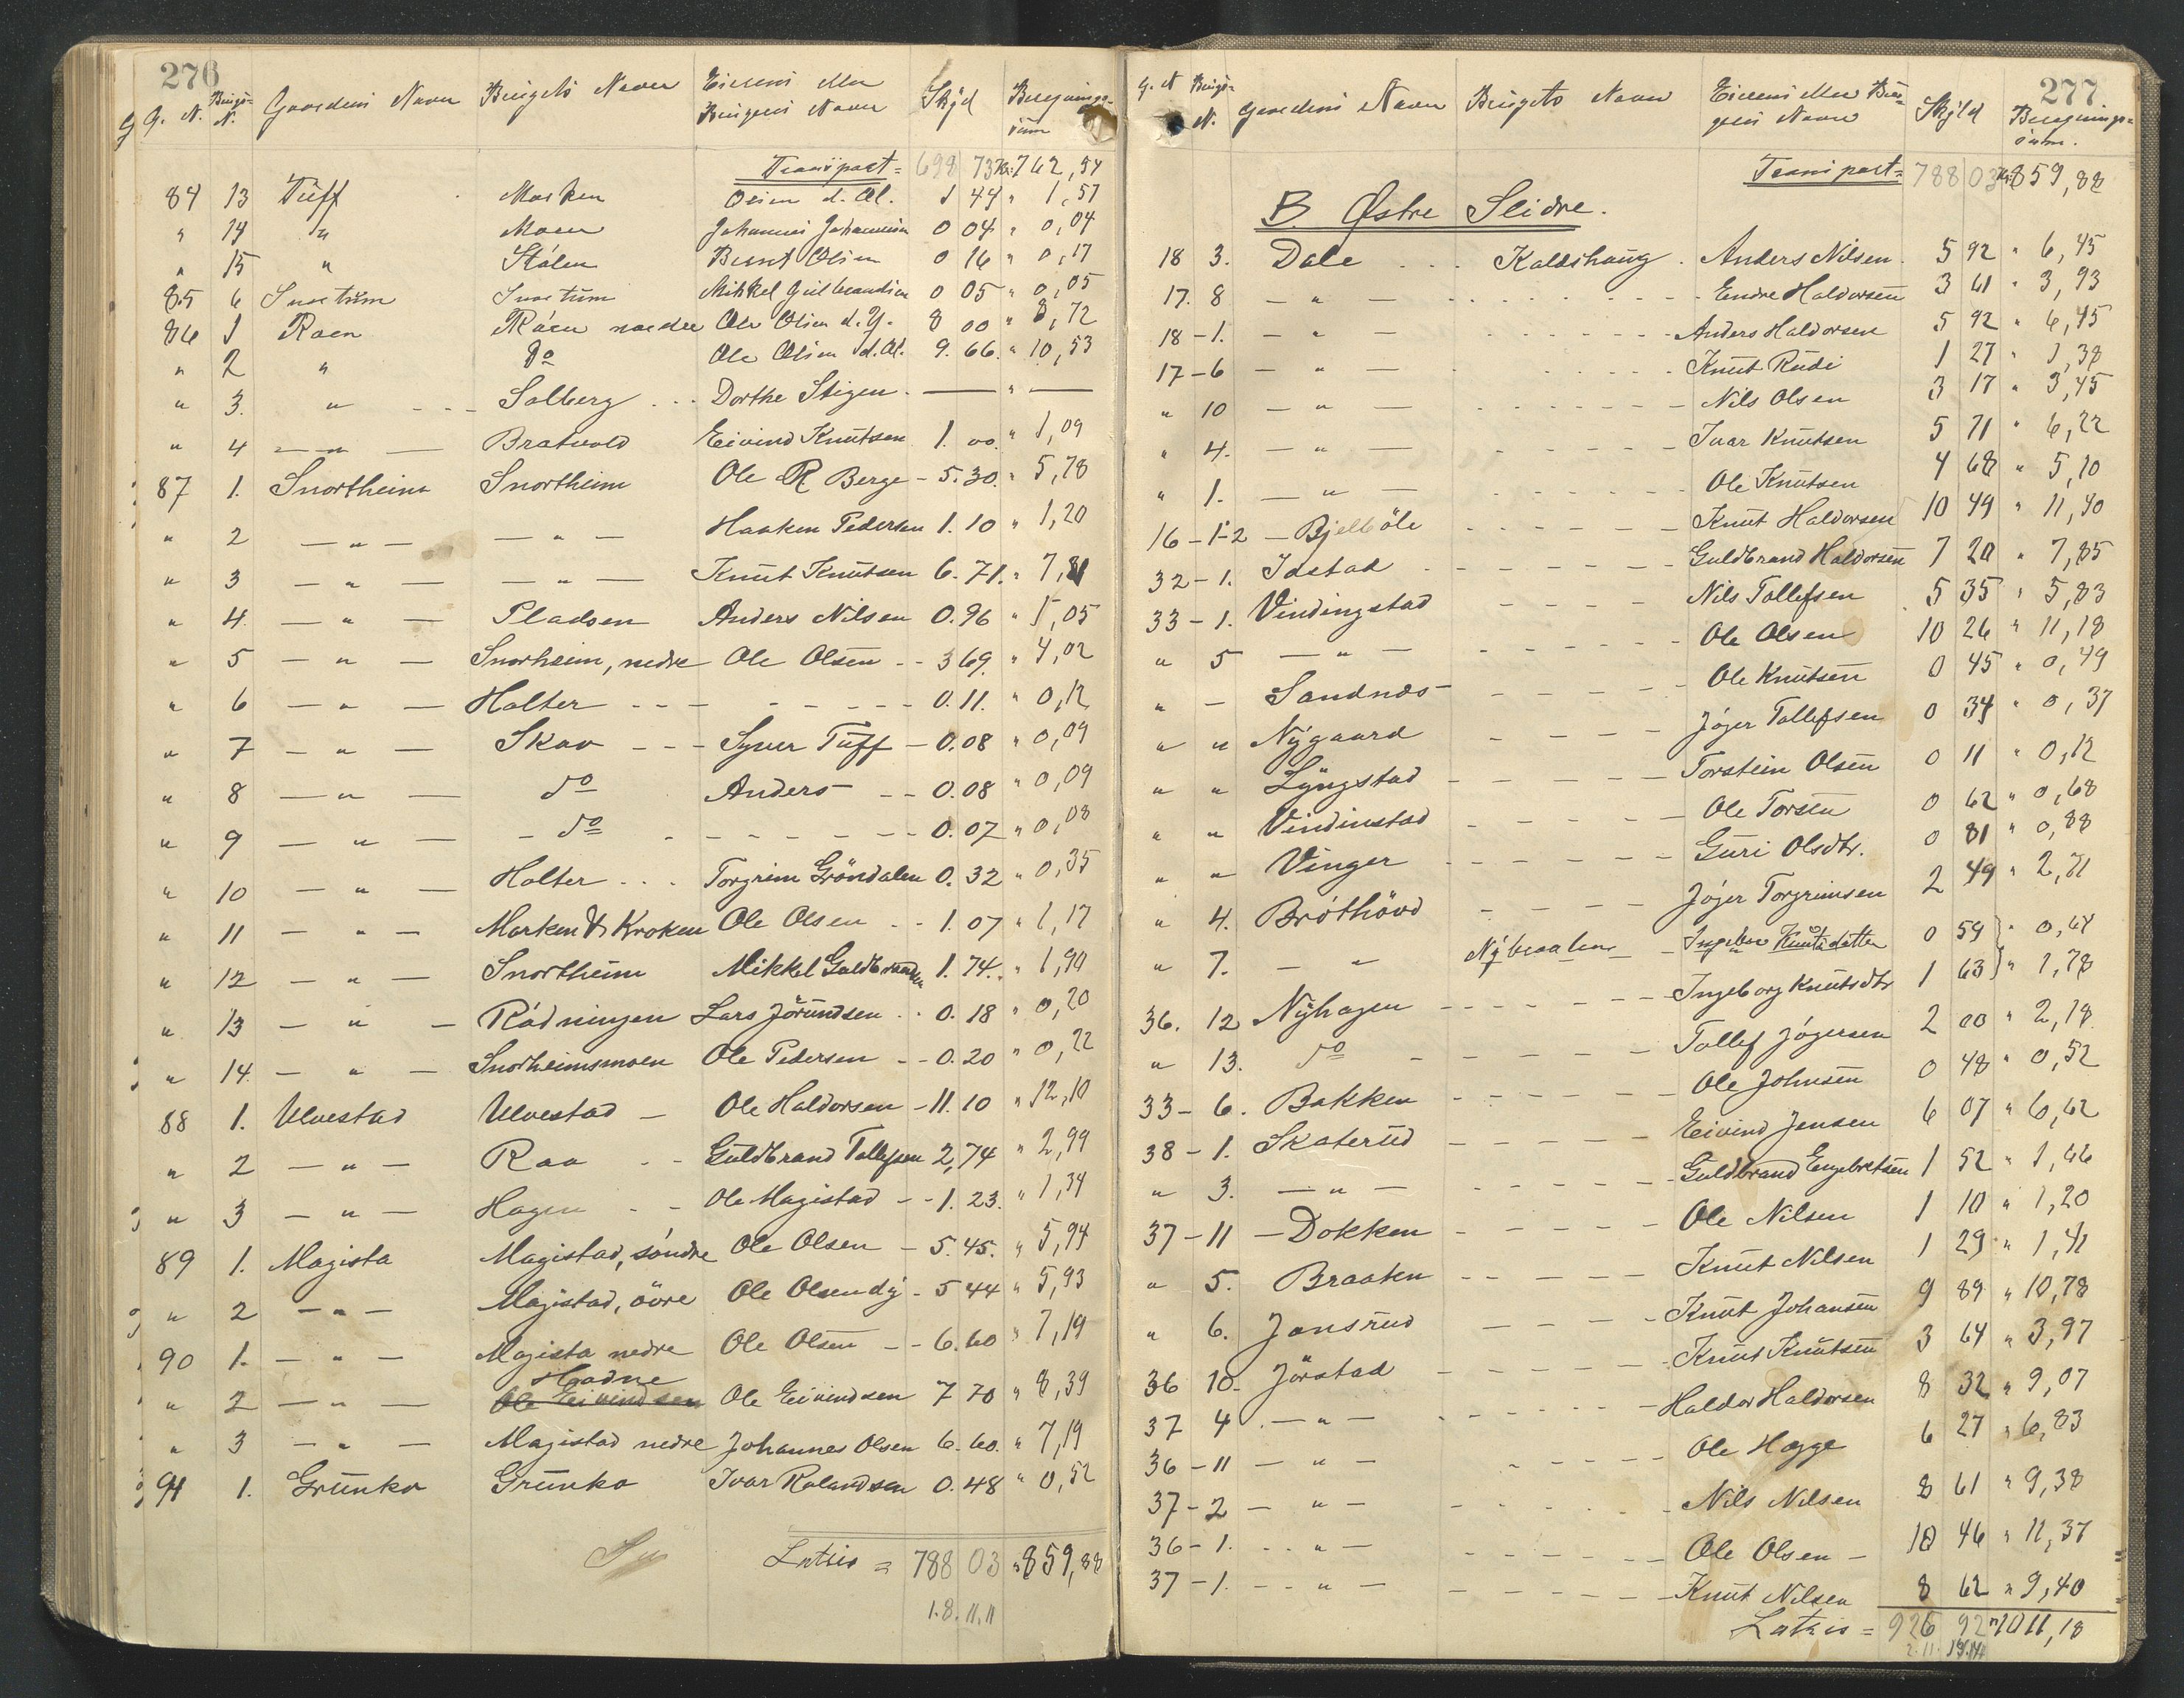 276
G. N. Brugs- N. Gaardens Navn Brugets Navn Eierens eller Brugerens Navn Skyld Beregnings- sum
Transport = 698 73 Kr. 762,54
84 13 Tuff Marken Orien d. Æl. 1 44 " 1,57
" 14 " Moen Johannes Johannesen 0 04 " 0,04
" 15 " Stálen Bernt Olsen 0 16 " 0,17
85 6 Snortum Snortum Mikkel Gulbrandsen 0 05 " 0,05
86 1 Roen Róen nordre Ole Olsen d. Y. 8 00 " 8,72
" 2 " Do Ole Olsen d. Æl. 9. 66. " 10,53
" 3. " Solberg Dorthe Stigen. — " —
" 4 — " — Bratvold Eivind Knutsen 1. 00. " 1,09
87 1. Snortheim Snortheim Ole R Berge - 5. 30. " 5,78
" 2 — " — — " — Haaken Pedersen 1. 10 " 1,20
" 3 — " — — " — Knut Knutsen 6. 71. " 7,31
" 4. — " — Pladsen Anders Nilsen 0. 96 " 1,05
" 5 — " — Snorheim, nedre Ole Olsen - - 3 69. " 4,02
" 6 — " — Holter - - - - - - - - 0. 11. " 0,12
" 7 — " — Skav - - - Syver Tuff - 0. 08 " 0,09
" 8 — " — do Anders - - 0. 08 " 0,09
" 9 — " — - do - - - - - - 0. 07 " 0,08
" 10 — " — Holter . . . Torgrim Gröndalen 0. 32 " 0,35
" 11 — " — Marken & Kroken Ole Olsen - - 1. 07 " 1,17
" 12 — " — Snortheim Mikkel Guldbrandsen 1. 74. " 1,90
" 13 — " — Rádningen Lars Jörundsen . . 0. 18 " 0,20
" 14. — " — Snorheimsmoen Ole Pedersen - - 0. 20 " 0,22
88 1. Ulvestad Ulvestad - Ole Haldorsen - 11. 10 " 12,10
" 2 — " — Raa - - Guldbrand Tollefsen 2,74 " 2,99
" 3 — " — Hagen - - Ole Magistad - - 1. 23. " 1,34
89 1. Magista Magistad, söndre Ole Olsen - 5. 45. " 5,94
" 2 — " — Magistad, övre Ole Olsen d.y. - 5 44 " 5,93
90 1. — " — Magista nedre Ole Olsen - - 6. 60 " 7,19
" 2 — " — Hadne Ole Eivindsen Ole Eivindsen 7 70 " 8,39
" 3 — " — Magistad nedre Johannes Olsen 6. 60. " 7,19
91 1. Grunke Grunke Ivar Rolandsen 0. 48 " 0,52
Latris = 788 03 " 859,88
1.8.11.11
277
G. N Brugs- N. Gaardens Navn Brugets Navn Eierens eller Bru- gers Navn Skyld Beregnings- sum.
Transport = 788 03 Kr. 859,88
B. Østre Slidre.
18 3. Dale . . . Kaldshaug . Anders Nilsen. 5 92 " 6,45
17. 8 — " — Endre Haldorsen 3 61 " 3,93
18 - 1. — " — Anders Haldorsen 5 92 " 6,45
17 - 6 — " — Knut Rudi 1 27 " 1,38
" 10 — " — Nils Olsen 3 17 " 3,45
" 4. — " — Ivar Knutsen 5 71 " 6,22
" 1. — " — Ole Knutsen 4 68 " 5,10
16 - 1-2 - Bjelböle Knut Haldorsen 10 49 " 11,40
32 - 1. Jostad Guldbrand Haldorsen 7 20 " 7,85
33 - 1. Vindingstad Nils Tollefsen 5 35 " 5,83
" 5 — " — Ole Olsen 10 26 " 11,18
" - Sandnæs Ole Knutsen 0 45 " 0,49
" " Nygaard Jóger Tollefsen 0 34 " 0,37
" " Lyngstad Torstein Olsen 0 11 " 0,12
" " Vindinstad Ole Torsen 0 62 " 0,68
" " Vinger Guri Olsdtr. 0 81 " 0,88
" 4. Bróthövd Jóger Torgrimsen 2 49 " 2,71
" 7. — " Nybraaten Ingebor Knutsdatter 0 59 " 0,64
Ingeborg Knutsdtr 1 63 " 1,78
36. 12 Nyhagen Tollef Jógersen 2 00 " 2,18
" 13. do Ole Johnsen 0 48 " 0,52
33 - 6. Bakken Eivind Jensen 6 07 " 6,62
38 - 1. Skaterud Guldbrand Engebretsen 1 52 " 1,66
" 3. — " — Ole Nilsen 1 10 " 1,20
37 - 11 - Dokken Knut Nilsen 1 29 " 1,41
" 5. Braaten Knut Johansen 9 89 " 10,78
" 6. Jonsrud Knut Knutsen 3 64 " 3,97
36 10. Jörstad Haldor Haldorsen 8 32 " 9,07
37 4 — " — Ole Hegge 6 27 " 6,83
36 - 11 — " — Nils Nilsen 8 61 " 9,38
37 - 2 — " — Ole Olsen - 10 46 " 11,37
36 - 1. — " — Knut Nilsen 8 62 " 9,40
37 - 1. — " —
Latris = 926 92 " 1011,18